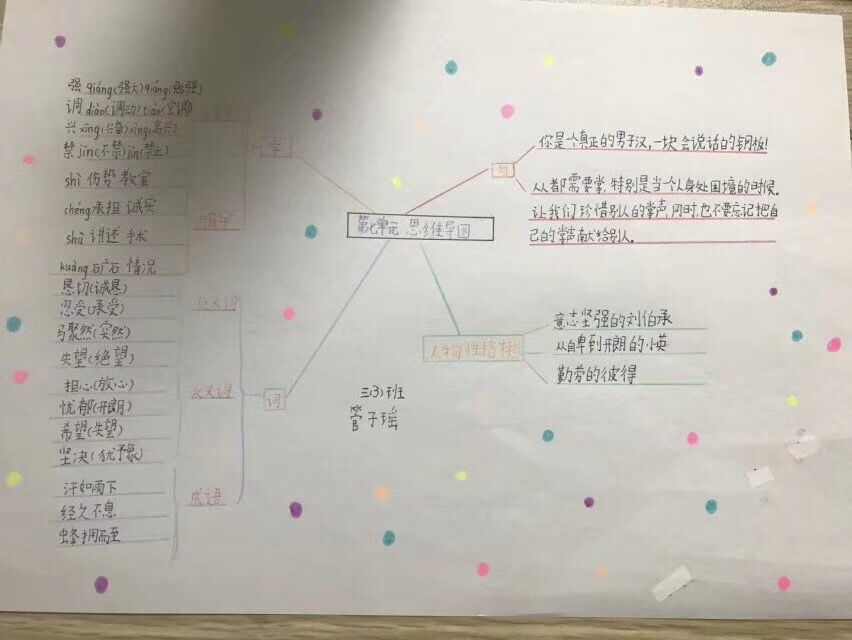 强 qiáng(强大) qiáng(勉强)
调 diào(调动) tiáo(空调)
兴 xīng(兴奋) xìng(高兴)
禁 jīn(不禁) jìn(禁止)
shì 伤势 教室
chéng承担 诚实
shù 讲述 手术
kuàng矿石 情况
字
恳切(诚恳)
忍受(承受)
马聚然(突然)
失望(绝望)
近义词
担心(放心)
忧郁(开朗)
希望(失望)
坚决(犹予象)
反义词
词
汗如雨下
经久不息
蜂拥而至
成语
第七单元 思维导图
句
你是个真正的男子汉,一块会说话的钢板!
从都需要掌,特别是当个人身处困境的时候.
让我们珍惜别人的掌声,同时,也不要忘记把自
己的掌声献给别人.
人物性格
意志坚强的刘伯承
从自卑到开朗的小英
勤劳的彼得
三(3)班
管子瑶